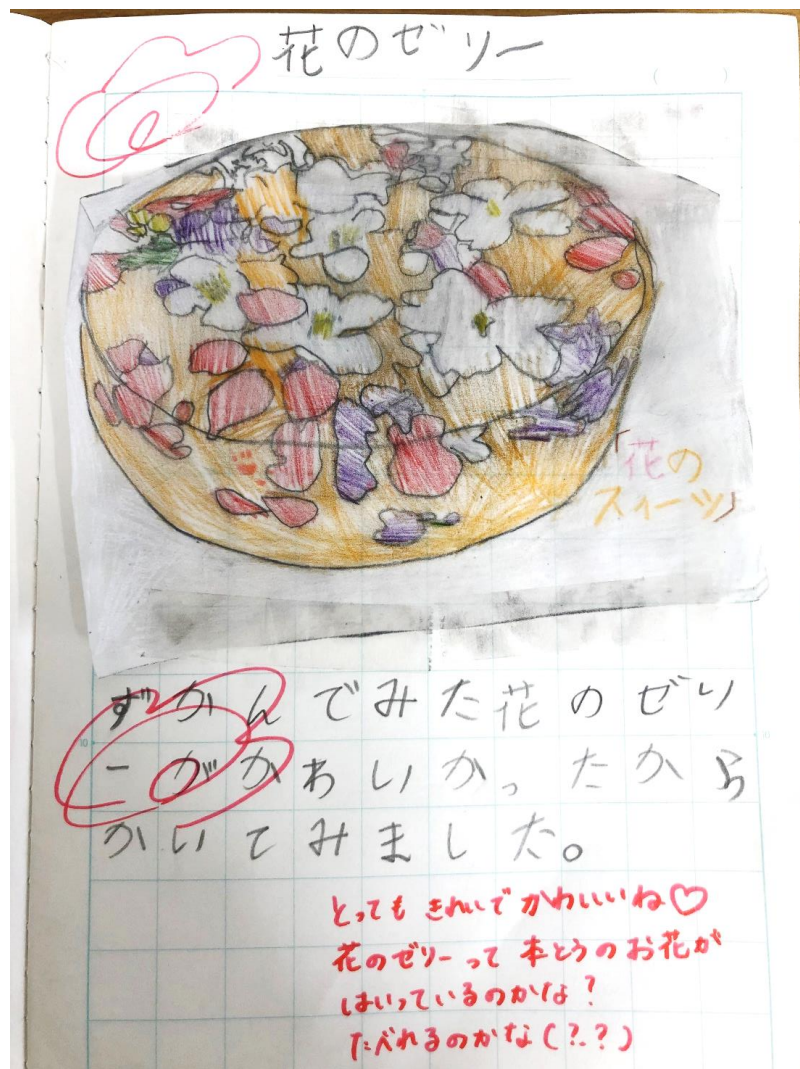 花のゼリー
「花の
スイーツ」
ずかんでみた花のゼリ
ーがかわいかったから
かいてみました。
とっても きれいで かわいいね♡
花のゼリーって 本とうのお花が
はいっているのかな?
たべれるのかな(?.?)